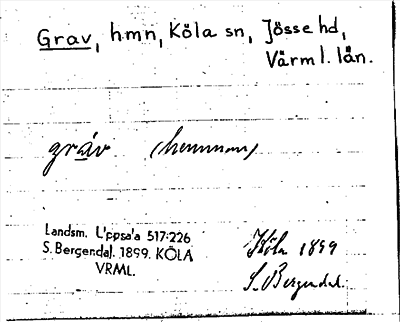 Grav, hmn, Köla sn, Jösse hd,
Värml. län.
gräv (hemman)
Landsm. Uppsala 517:226
S. Bergendal. 1899. KÖLA
VRML.
Köla 1899
S. Bergendal.